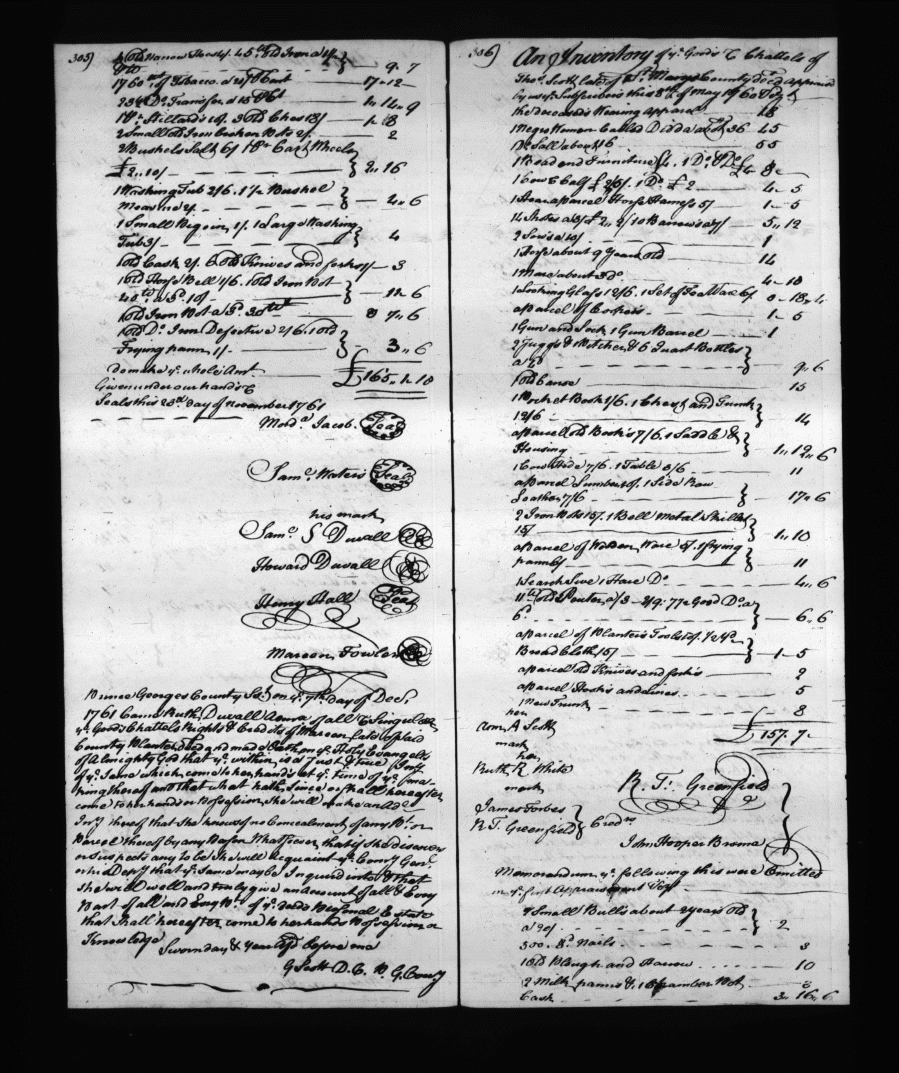 305)
4 Old Narrow Hoes 4/. 45 lb Old Iron a 1/4
9.. 7
1760 wt of Tobacco. a 20/ P Cent
17.. 12
234 Do. Transfer. a 15 P Ct
1.. 14.. 9
1 pr. Stillards 10/. 3 Old Chests 18/
1.. 8
2 Small Old Iron Broken Pots 2/.
2
2 Bushels Salt 6/ 1 pr. Cart Wheels
£ 2..10/
2.. 16
1 Washing Tub 2/6. 1 1/2 Bushel
Measure 2/.
4.. 6
1 Small Piggin, 1/. 1 Large Washing
Tub 3/
4
1 Old Cask 2/. 6 Old Knives and forks 1/
3
1 Old Horse Bell 1/6. 1 Old Iron Pot
40 lb a 3d. 10/
12.. 6
1 Old Iron Pot a 3d. 30 lb wt
7.. 6
1 Old Do. Iron Defective 2/6. 1 old
Frying pann 1/
3.. 6
do make ye. whole Amt.
£ 165.. 1.. 10
Given under our hands &
Seals this 23d. day of November 1761
Mord.a Jacob. Seal
Saml. Waters Seal
his mark
Saml. S Duvall
Howard Duvall
Henry Hall Seal
Mareen Fowler
Prince Georges County Sc. on ye. 7th. day of Decr.
1761 Came Ruth Duvall Admx of all & Singular
ye. Goods Chattels Rights & Credits of Mareen late of said
County Planter, decd and made Oath on ye. Holy Evangels
of Almighty God that ye. within is a Just & true Invy
of ye. Same which come to her hands at ye. time of ye. ma-
king thereof and that what hath, Since or shall hereafter
come to her hands or Possession, she will make an Add.
Invy thereof that she knows of no Concealment of any Pt. or
Parcel thereof by any Person Whatsoever, that if she discovers
or suspects any to be She will Acquaint ye. Comry Genl.
or his Depty that ye. Same may be Inquird into & that
she will Well and truly give an Account of all & Every
Part of all and Evry Pt. of ye. decds Personal Estate
that shall hereafter come to her hands Possession or
Knowledge
Sworn day & Year afd before me
G Scott D. C. P. G. County
306)
An Inventory of ye. Goods & Chattels of
Thos. Scott late of St. Marys County decd appraised
by us ye. Subscribers this 8th of May 1760
the deceaseds Wearing apparel
18
1 Negro Woman Called Didda abt 36
45
Do Sall about 16
55
1 Bead and Furniture £4. 1 Do. & Do £4
8
1 Cow & Calf £ 2/5/. 1 Do £ 2
4.. 5
1 Hoar a parcel Horse Harness 5/
1.. 5
5.. 12
2 Sows a 10/
1
1 Horse about 9 Years old
14
1 Mare about 3 Do
4.. 10
1 Looking Glass 12/6. 1 Set of Tea Ware 6/
0.. 18.. 4
a parcel of Coopers
1.. 5
1 Gun and Lock 1 Gun Barrel
1
2 Juggs 1 Pitcher & 6 Quart Bottles
9.. 6
1 Old Canoe
15
1 Pocket Book 1/6. 1 Chest and Trunk
12/6
14
a parcell old Books 7/6. 1 Saddle &
Housing
1.. 12.. 6
1 Cow Hide 7/6. 1 Table 3/6
11
a Parcel Lumber 10/. 1 Side Raw
Leather 7/6
17.. 6
2 Iron Pots 15/. 1 Bell Metal Skillet
15/
1.. 10
a parcel of Wooden Ware 5/. 1 frying
pann 6/
11
1 Search Sive 1 Hare Do
4.. 6
11 lb Old Peuter, a/3 - 2/9. 77 lb Good Do. a
6.. 6
a parcel of Planters Tools 10/. 1/2 Yd.
Broad Cloth 15/
1.. 5
a parcel old Knives and forks
2
a parcel Hooks and Lines
5
1 New Trunk
8
£ 157.. 7
her
Ann A Scott
mark
her
Ruth R White
mark
R. T. Greenfield
James Forbes
R. T. Greenfield } Credrs
John Hooper Brome
Memorandum ye. following this were Omitted
in ye. first Appraisment
4 Small Bulls about 2 years Old
a 20/
2
500. 8d. Nails
3
1 Old Plough and Harrow
10
2 Milk panns &. 1 Chamber Pot
3
Cash
3.. 16.. 6